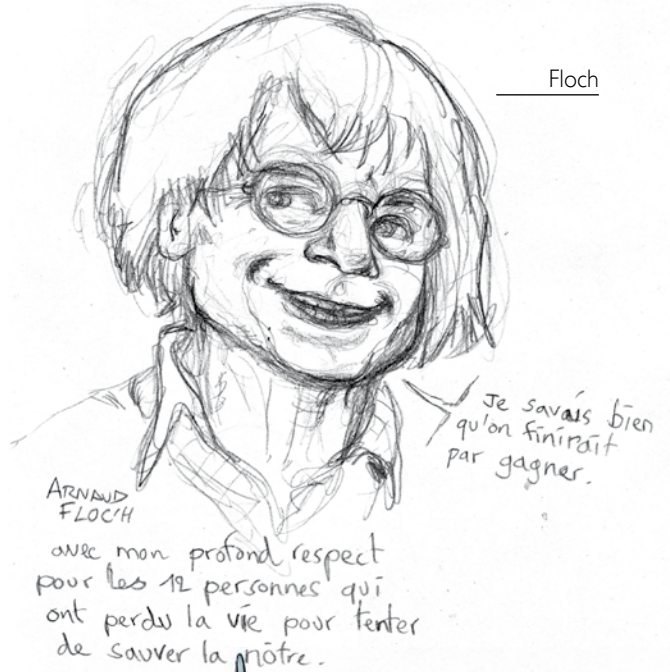 Floch
Je savais bien
qu'on finirait
par gagner.
ARNAUD
FLOC'H
avec mon profond respect
pour les 12 personnes qui
ont perdu la vie pour tenter
de sauver la nôtre.